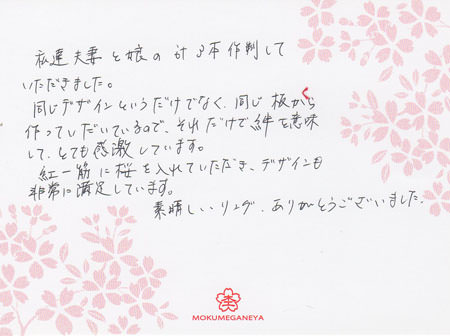 私達夫妻と娘の計3本作判して
いただきました。
同じデザインというだけでなく、同じ板から
作っていだいているので、それだけで絆を意味
して、とても感激しています。
紅一筋に桜を入れていただき、デザインも
非常に満足しています。
素晴しいリング、ありがとうございました。
MOKUMEGANEYA